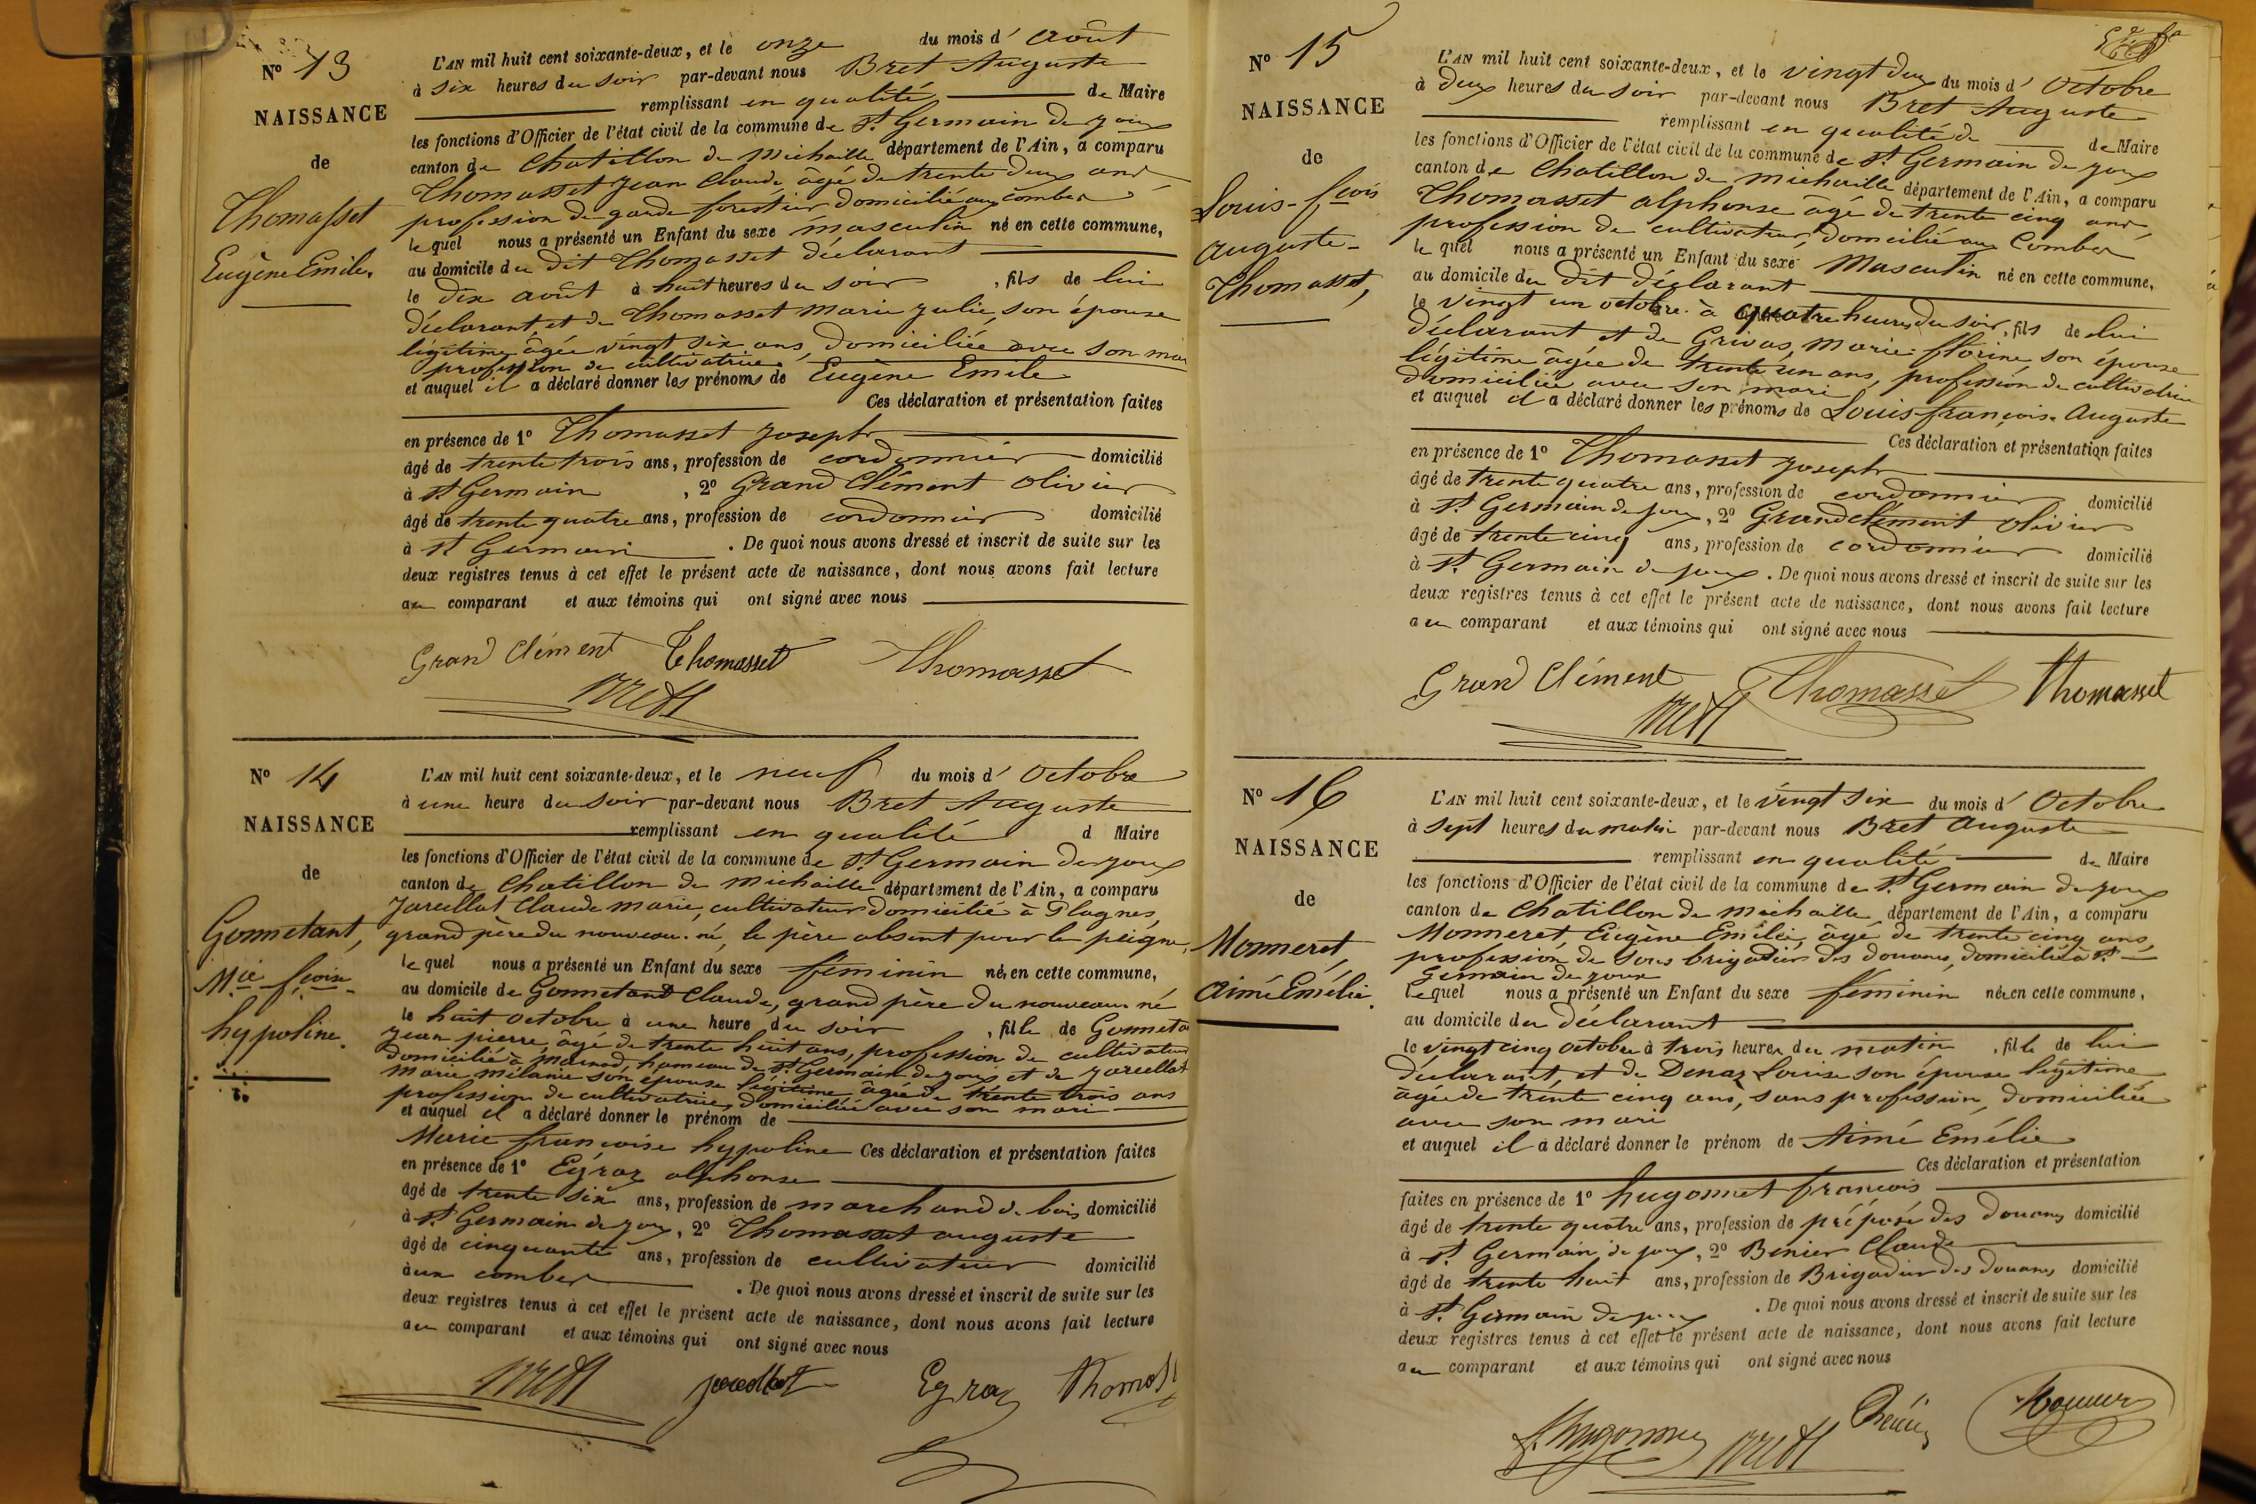 Nº 13
NAISSANCE
de
Thomasset
Eugène Emile.
L'AN mil huit cent soixante-deux, et le onze du mois d' Août
à six heures du soir par-devant nous Bret Auguste
remplissant en qualité de Maire
les fonctions d'Officier de l'état civil de la commune de St. Germain de joux
canton de Chatillon de michaille département de l'Ain, a comparu
Thomasset Jean Claude âgé de trente deux ans
profession de garde forestier domicilié aux combes
lequel nous a présenté un Enfant du sexe masculin né en cette commune,
au domicile du dit Thomasset déclarant
le dix août à huit heures du soir, fils de lui
déclarant, et de Thomasset marie julie, son épouse
légitime âgée vingt six ans, domiciliée avec son mari
profession de cultivatrice.
et auquel il a déclaré donner les prénoms de Eugène Emile
Ces déclaration et présentation faites
en présence de 1º Thomasset joseph
âgé de trente trois ans, profession de cordonnier domicilié
à St Germain, 2º Grand Clément olivier
âgé de trente quatre ans, profession de cordonnier domicilié
à St Germain. De quoi nous avons dressé et inscrit de suite sur les
deux registres tenus à cet effet le présent acte de naissance, dont nous avons fait lecture
au comparant et aux témoins qui ont signé avec nous
Grand Clément Thomasset Thomasset
Bret
Nº 14
NAISSANCE
de
Gonnetant,
Mie. fçoise
hypoline.
L'AN mil huit cent soixante-deux, et le neuf du mois d' Octobre
à une heure du soir par-devant nous Bret Auguste
remplissant en qualité d Maire
les fonctions d'Officier de l'état civil de la commune de St Germain de joux
canton de Chatillon de michaille département de l'Ain, a comparu
Jarcellat Claude marie, cultivateur domicilié à Plagnes,
grand père du nouveau-né, le père absent pour le peigne,
lequel nous a présenté un Enfant du sexe féminin née en cette commune,
au domicile de Gonnetant Claude, grand père du nouveau né
le huit octobre à une heure du soir, fille de Gonneta
Jean pierre, âgé de trente huit ans, profession de cultivateur
domicilié à marnod, hameau de St Germain de joux et de jarcellat
marie mélanie son épouse légitime, âgée de trente trois ans
profession de cultivatrice, domiciliée avec son mari
et auquel il a déclaré donner le prénom de
Marie françoise hypoline Ces déclaration et présentation faites
en présence de 1º Egraz alphonse
âgé de trente six ans, profession de marchand de bois domicilié
à St Germain de joux, 2º Thomasset auguste
âgé de cinquante ans, profession de cultivateur domicilié
aux combes. De quoi nous avons dressé et inscrit de suite sur les
deux registres tenus à cet effet le présent acte de naissance, dont nous avons fait lecture
au comparant et aux témoins qui ont signé avec nous
Bret Jarcellat Egraz Thomass
Nº 15
NAISSANCE
de
Louis-fçois
auguste-
Thomasset,
L'AN mil huit cent soixante-deux, et le vingt deux du mois d' Octobre
à deux heures du soir par-devant nous Bret Auguste
remplissant en qualité de de Maire
les fonctions d'Officier de l'état civil de la commune de St. Germain de joux
canton de Chatillon de michaille département de l'Ain, a comparu
Thomasset alphonse âgé de trente cinq ans,
profession de cultivateur, domicilié aux Combes
lequel nous a présenté un Enfant du sexe Masculin né en cette commune,
au domicile du dit déclarant
le vingt un octobre à quatre heures du soir, fils de lui
déclarant et de Grivas, Marie florine son épouse
légitime âgée de trente un ans, profession de cultivatrice
domiciliée avec son mari
et auquel il a déclaré donner les prénoms de Louis françois Auguste
Ces déclaration et présentation faites
en présence de 1º Thomasset joseph
âgé de trente quatre ans, profession de cordonnier domicilié
à St. Germain de joux, 2º Grand clément olivier
âgé de trente cinq ans, profession de cordonnier domicilié
à St. Germain de joux. De quoi nous avons dressé et inscrit de suite sur les
deux registres tenus à cet effet le présent acte de naissance, dont nous avons fait lecture
au comparant et aux témoins qui ont signé avec nous
Grand Clément Thomasset Thomasset
Bret
Nº 16
NAISSANCE
de
Monneret,
Aimé Emélie.
L'AN mil huit cent soixante-deux, et le vingt six du mois d' Octobre
à sept heures du matin par-devant nous Bret Auguste
remplissant en qualité de Maire
les fonctions d'Officier de l'état civil de la commune de St. Germain de joux
canton de Chatillon de michaille département de l'Ain, a comparu
Monneret, Eugène Emilée, âgé de trente cinq ans,
profession de sous brigadier des douanes, domicilié à St
Germain de joux
lequel nous a présenté un Enfant du sexe féminin née en cette commune,
au domicile du déclarant
le vingt cinq octobre à trois heures du matin, fille de lui
déclarant, et de Denaz Louise son épouse légitime
âgée de trente cinq ans, sans profession, domiciliée
avec son mari
et auquel il a déclaré donner le prénom de Aimé Emélie
Ces déclaration et présentation
faites en présence de 1º hugonnet françois
âgé de trente quatre ans, profession de préposé des douanes domicilié
à St. Germain de joux, 2º Benier Claude
âgé de trente huit ans, profession de Brigadier des douanes domicilié
à St. Germain de joux. De quoi nous avons dressé et inscrit de suite sur les
deux registres tenus à cet effet le présent acte de naissance, dont nous avons fait lecture
au comparant et aux témoins qui ont signé avec nous
f. hugonnet Bret Bénier Monneret